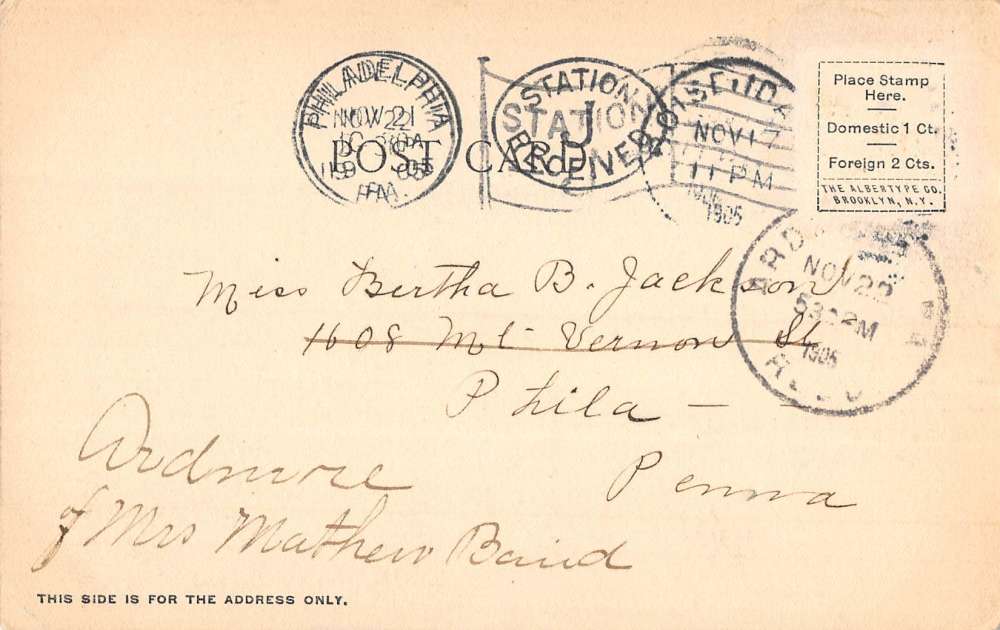 PHILADELPHIA
NOV 22
1905
PA.
STATION
J
RECEIVED
NOV 17
11 PM
1905
Place Stamp
Here.
Domestic 1 Ct.
Foreign 2 Cts.
THE ALBERTYPE CO.
BROOKLYN, N.Y.
POST CARD
NOV 25
530 PM
1905
Miss Bertha B. Jackson
1608 Mt Vernon St
Phila —
Penna
Ardmore
Mrs Mathew Baird
THIS SIDE IS FOR THE ADDRESS ONLY.